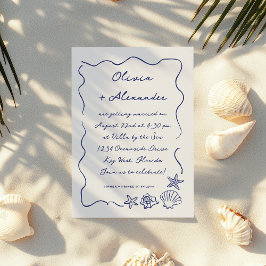 Olivia
+ Alexander
are getting married on
August 22nd at 4:30 pm
at Villa by the Sea
1234 Oceanside Drive
Key West, Florida
Join us to celebrate!